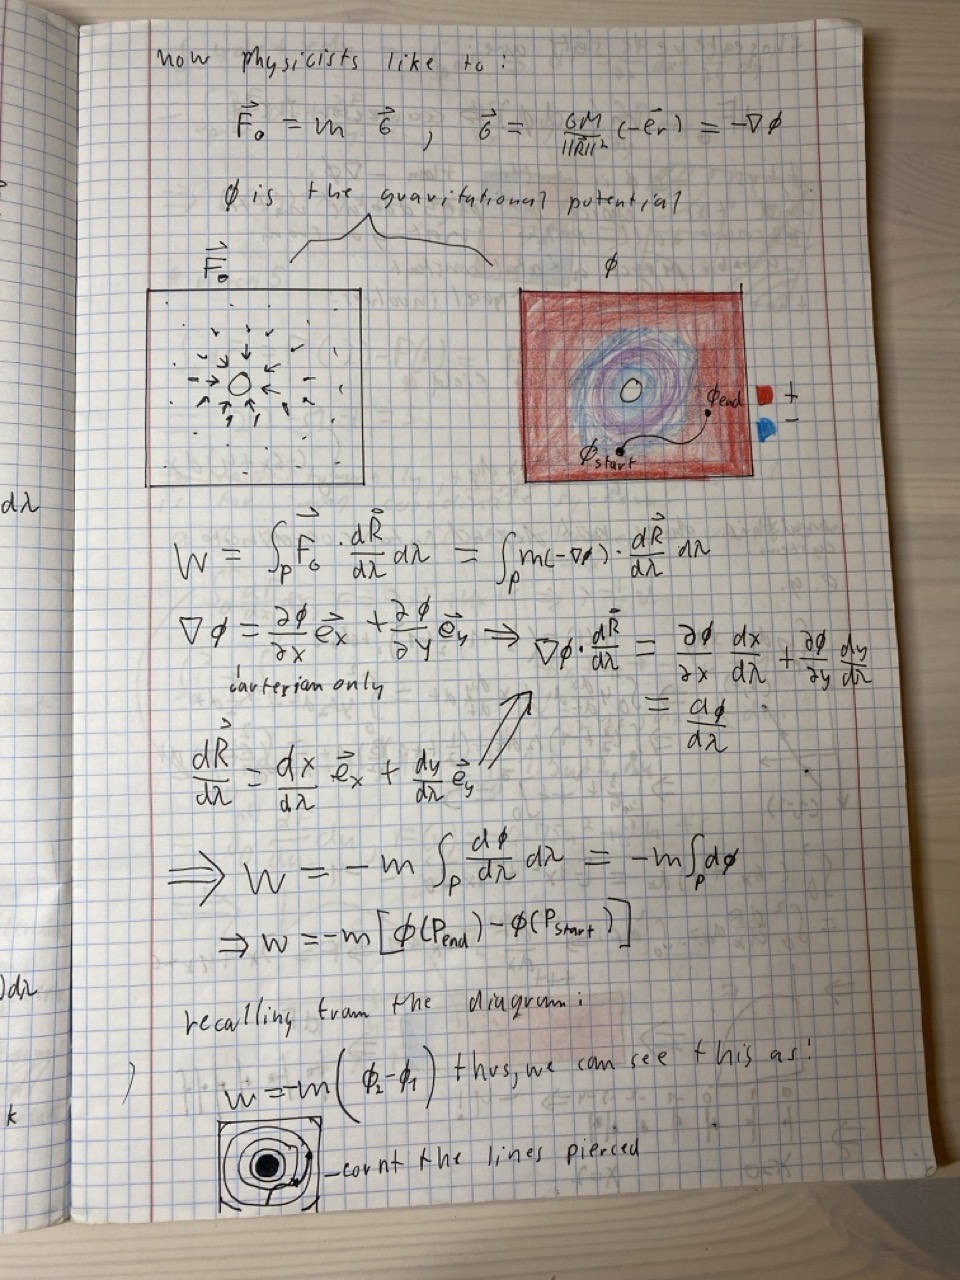 now physicists like to:
F⃗_G = m G⃗ , G⃗ = GM/||R⃗||² (-e⃗_r) = -∇ϕ
ϕ is the gravitational potential
F⃗_G
ϕ
ϕend
ϕstart
+
-
dλ
W = ∫_P F⃗_G · dR⃗/dλ dλ = ∫_P m(-∇ϕ) · dR⃗/dλ dλ
∇ϕ = ∂ϕ/∂x e⃗_x + ∂ϕ/∂y e⃗_y ⇒ ∇ϕ · dR⃗/dλ = ∂ϕ/∂x dx/dλ + ∂ϕ/∂y dy/dλ
carterian only
= dϕ/dλ
dR⃗/dλ = dx/dλ e⃗_x + dy/dλ e⃗_y
⟹ W = -m ∫_P dϕ/dλ dλ = -m ∫_P dϕ
⇒ W = -m [ϕ(P_end) - ϕ(P_start)]
)dλ
recalling from the diagram:
W = -m (ϕ₂ - ϕ₁) thus, we can see this as:
)
k
- count the lines pierced